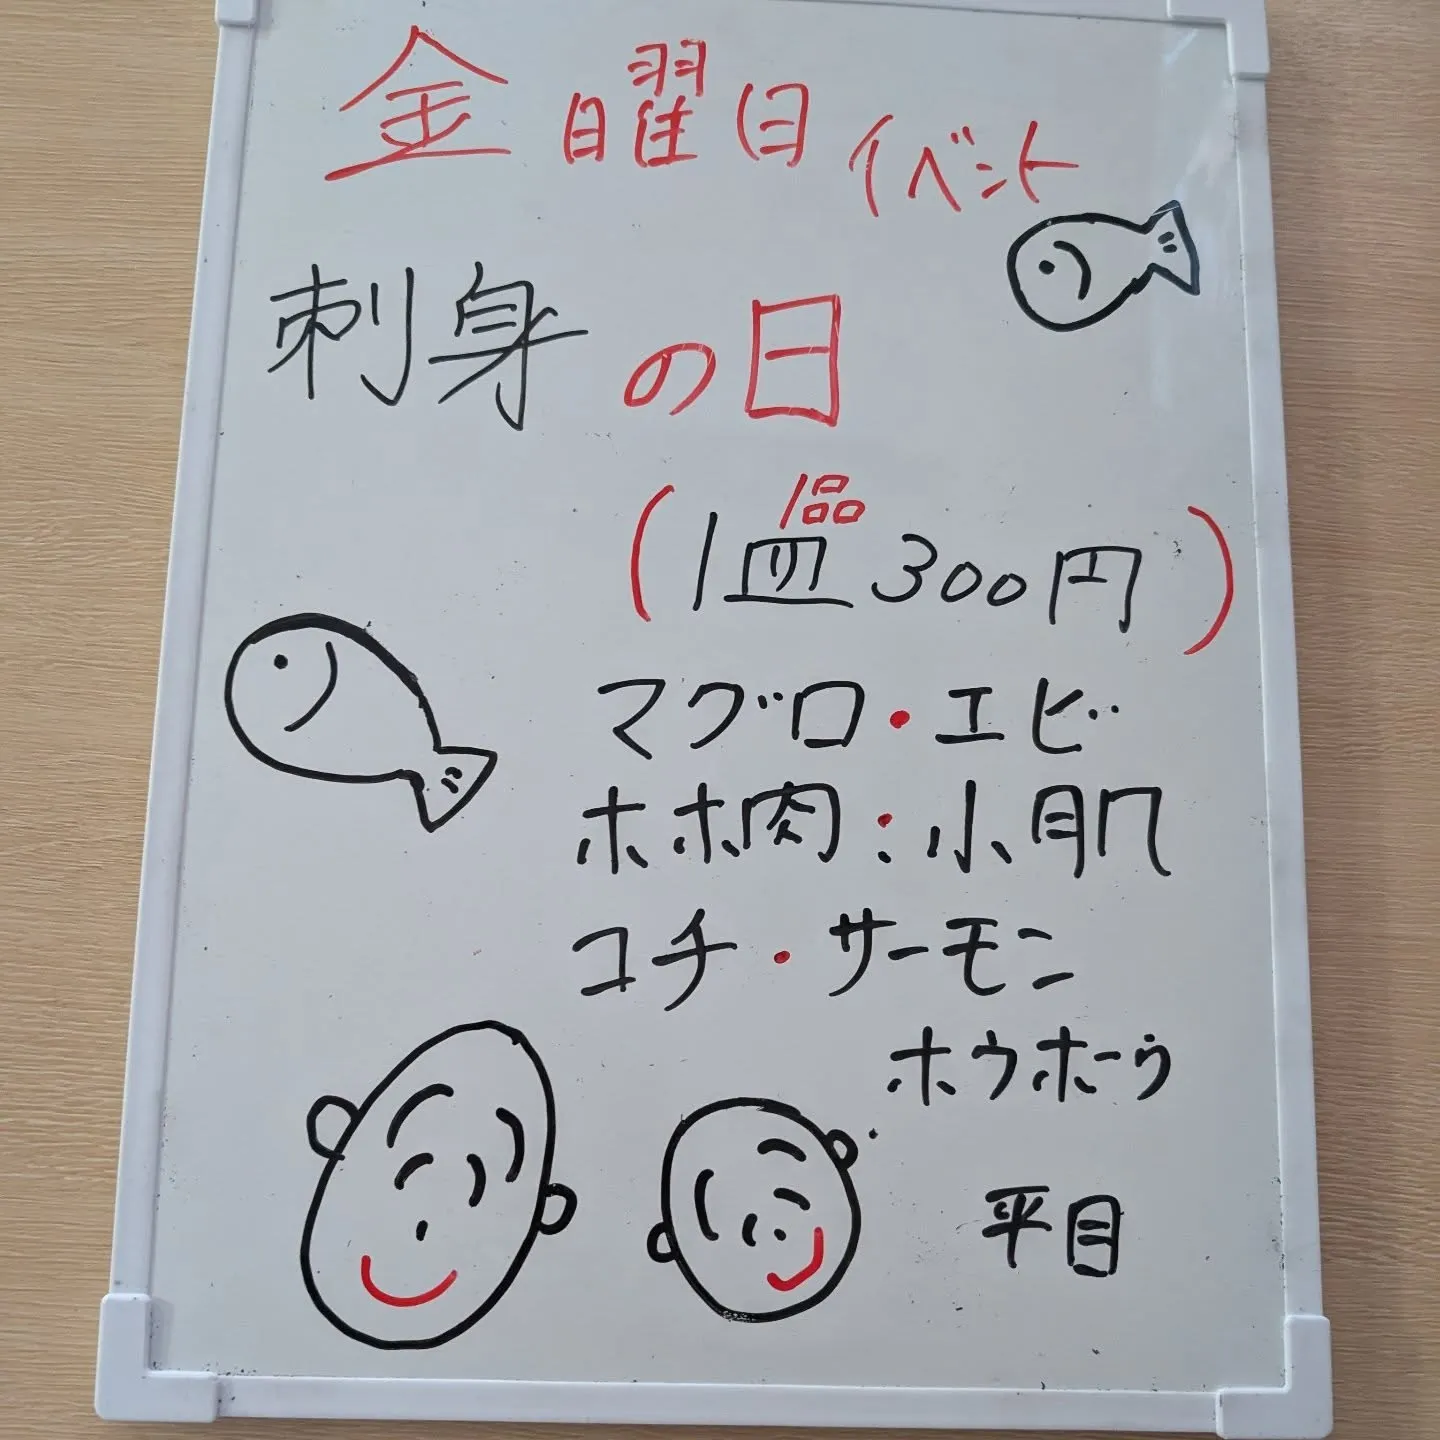 金曜日イベント
刺身の日
1品
(1皿300円)
マグロ・エビ
ホホ肉:小肌
コチ・サーモン
ホウホーウ
平目